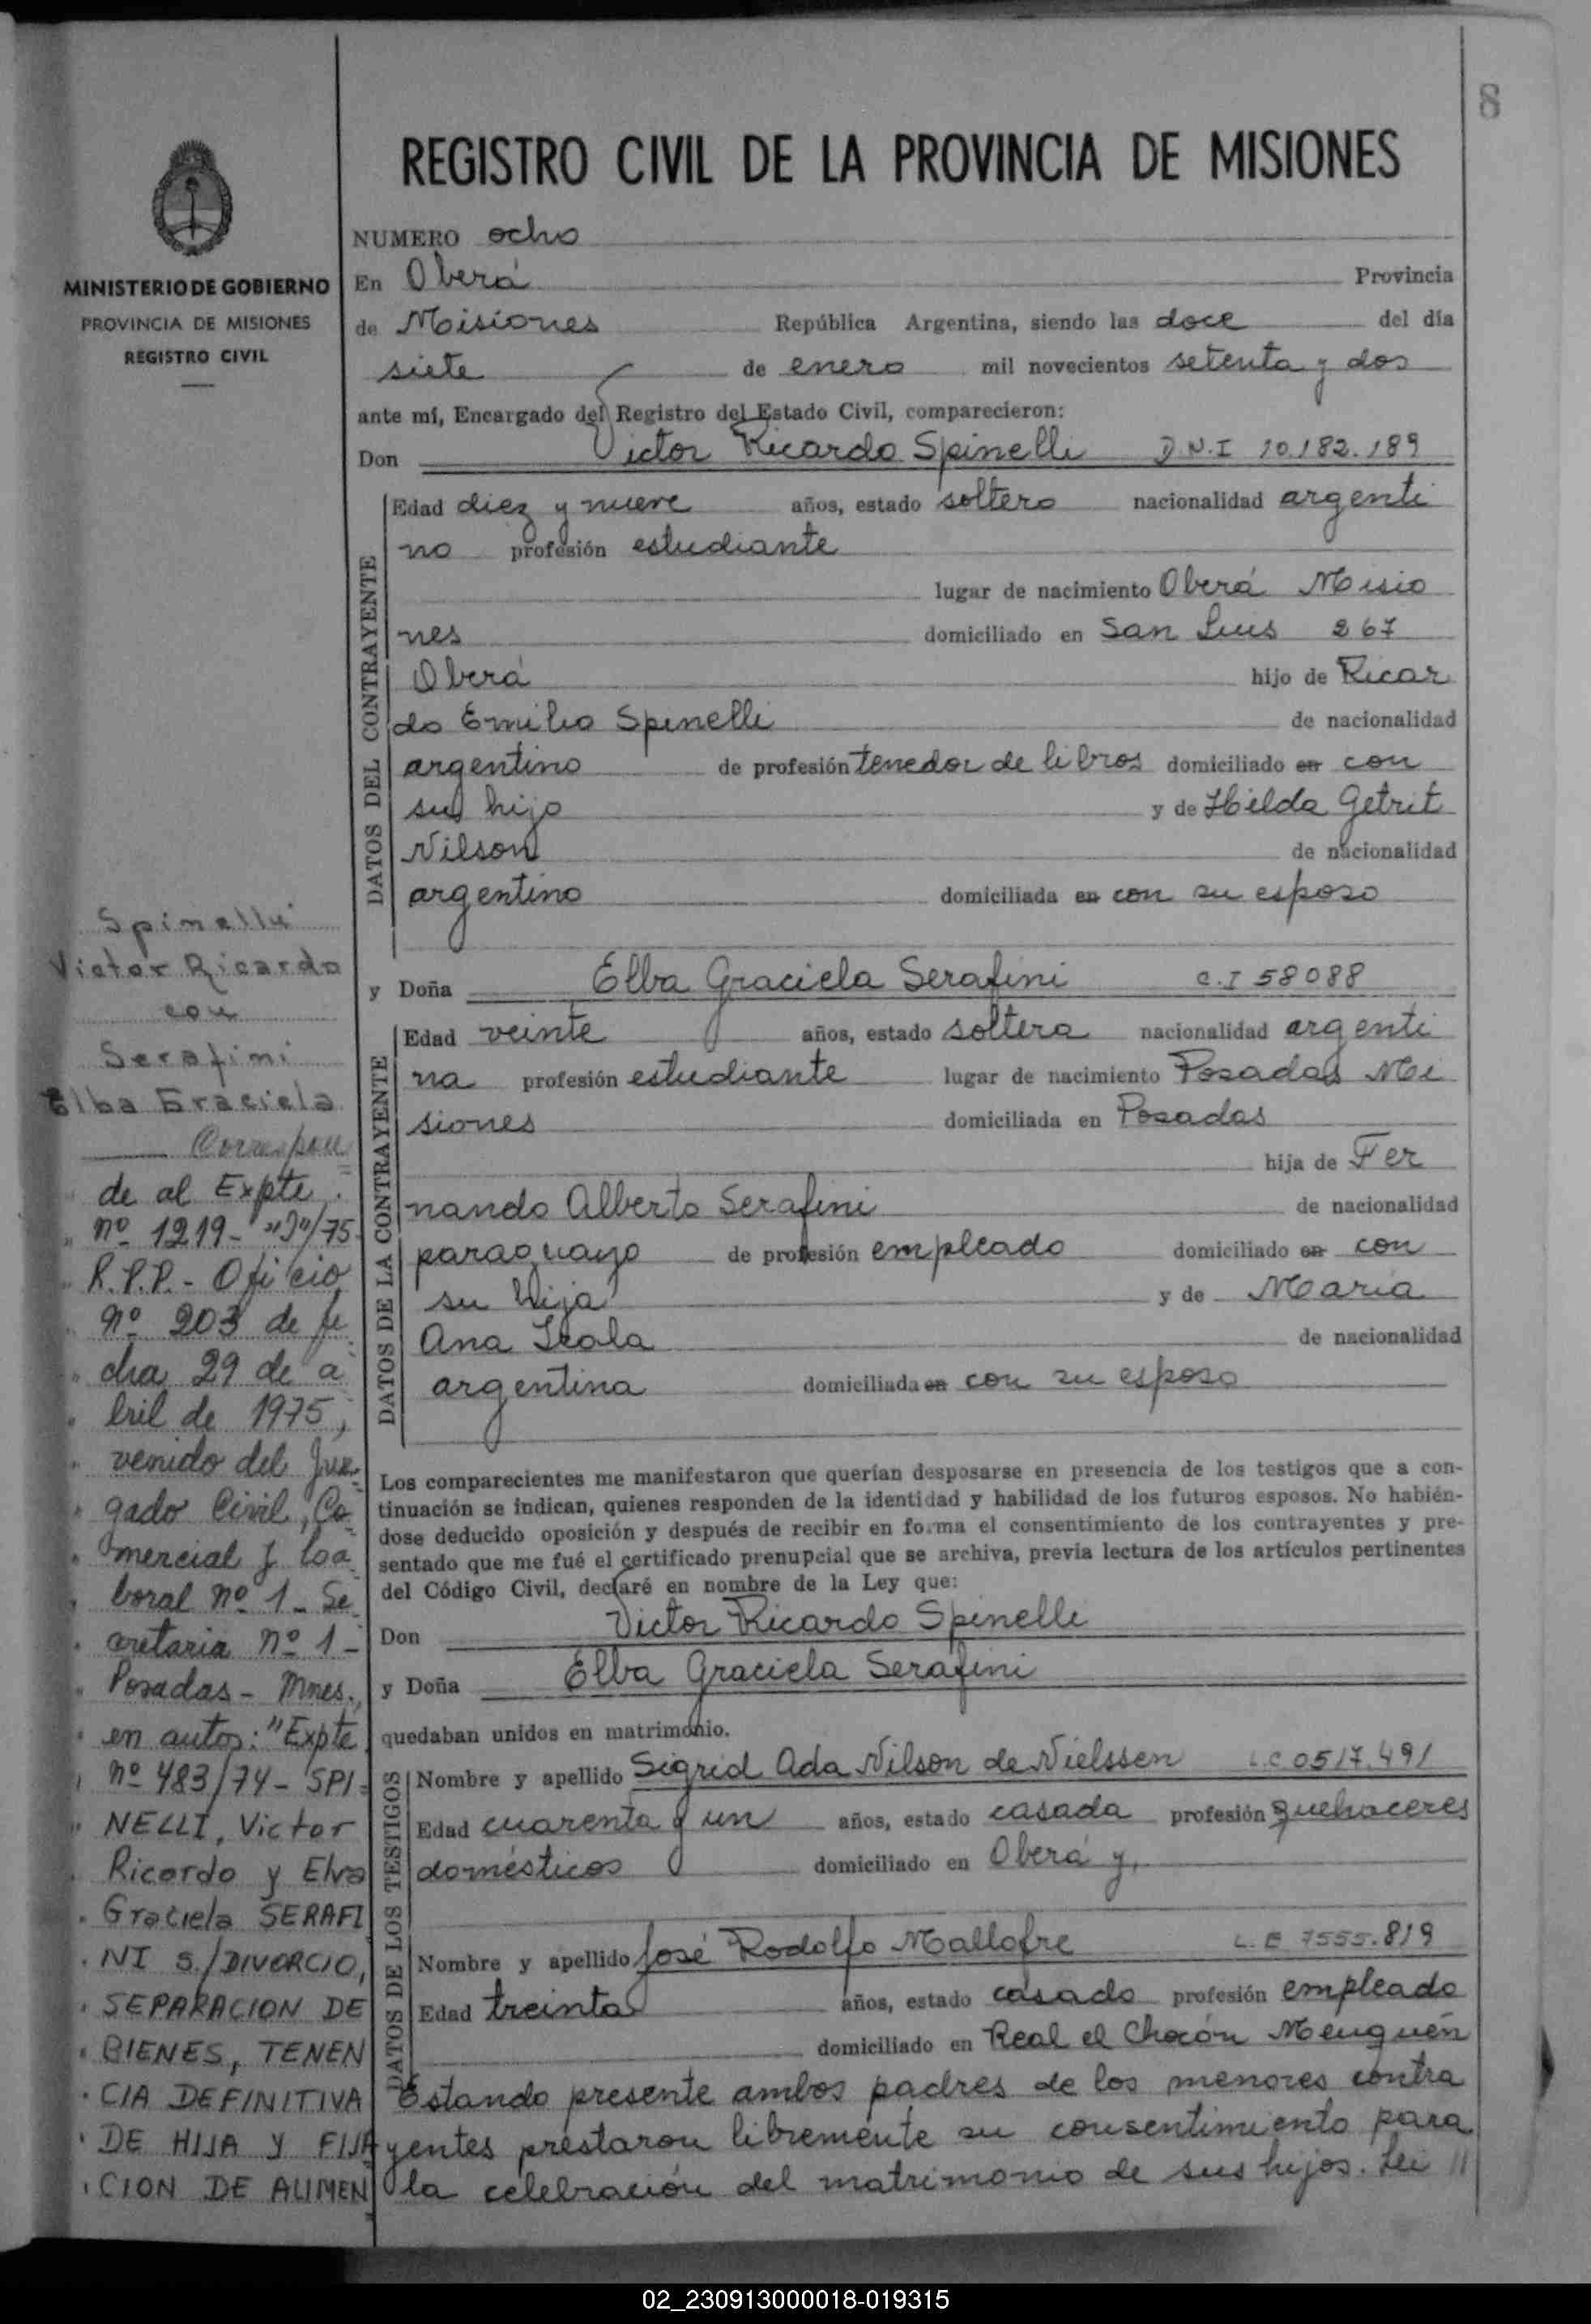 8
REGISTRO CIVIL DE LA PROVINCIA DE MISIONES
MINISTERIO DE GOBIERNO
PROVINCIA DE MISIONES
REGISTRO CIVIL
NUMERO ocho
En Oberá Provincia
de Misiones República Argentina, siendo las doce del día
siete de enero mil novecientos setenta y dos
ante mí, Encargado del Registro del Estado Civil, comparecieron:
Don Victor Ricardo Spinelli D.N.I 10.182.189
DATOS DEL CONTRAYENTE
Edad diez y nueve años, estado soltero nacionalidad argenti
no profesión estudiante
lugar de nacimiento Oberá Misio
nes domiciliado en San Luis 267
Oberá hijo de Ricar
do Emilio Spinelli de nacionalidad
argentino de profesión tenedor de libros domiciliado en con
su hijo y de Hilda Getrit
Nilson de nacionalidad
argentino domiciliada en con su esposo
y Doña Elba Graciela Serafini C.I 58088
DATOS DE LA CONTRAYENTE
Edad veinte años, estado soltera nacionalidad argenti
na profesión estudiante lugar de nacimiento Posadas Mi
siones domiciliada en Posadas
hija de Fer
nando Alberto Serafini de nacionalidad
paraguayo de profesión empleado domiciliado en con
su hija y de Maria
Ana Irala de nacionalidad
argentina domiciliada en con su esposo
Los comparecientes me manifestaron que querían desposarse en presencia de los testigos que a con-
tinuación se indican, quienes responden de la identidad y habilidad de los futuros esposos. No habién-
dose deducido oposición y después de recibir en forma el consentimiento de los contrayentes y pre-
sentado que me fué el certificado prenupcial que se archiva, previa lectura de los artículos pertinentes
del Código Civil, declaré en nombre de la Ley que:
Don Victor Ricardo Spinelli
y Doña Elba Graciela Serafini
quedaban unidos en matrimonio.
DATOS DE LOS TESTIGOS
Nombre y apellido Sigrid Ada Nilson de Nielssen L.C 0517.491
Edad cuarenta y un años, estado casada profesión quehaceres
domésticos domiciliado en Oberá y,
Nombre y apellido José Rodolfo Mallofre L.E 7555.819
Edad treinta años, estado casado profesión empleado
domiciliado en Real el Chocón Meuquén
Estando presente ambos padres de los menores contra
yentes prestaron libremente su consentimiento para
la celebración del matrimonio de sus hijos. Lei
Spinelli
Victor Ricardo
con
Serafini
Elba Graciela
Correspon
de al Expte.
nº 1219- "J"/75
R.P.P.- Oficio
nº 203 de fe
cha 29 de a
bril de 1975,
venido del Juz-
gado Civil, Co
mercial y Loa
boral nº 1- Se
cretaria nº 1-
Posadas- Mnes.,
en autos: "Expte
nº 483/74- SPI-
NELLI, Victor
Ricardo y Elva
Graciela SERAFI
NI S./DIVORCIO,
SEPARACION DE
BIENES, TENEN
CIA DEFINITIVA
DE HIJA Y FIJA
CION DE ALIMEN
02_230913000018-019315